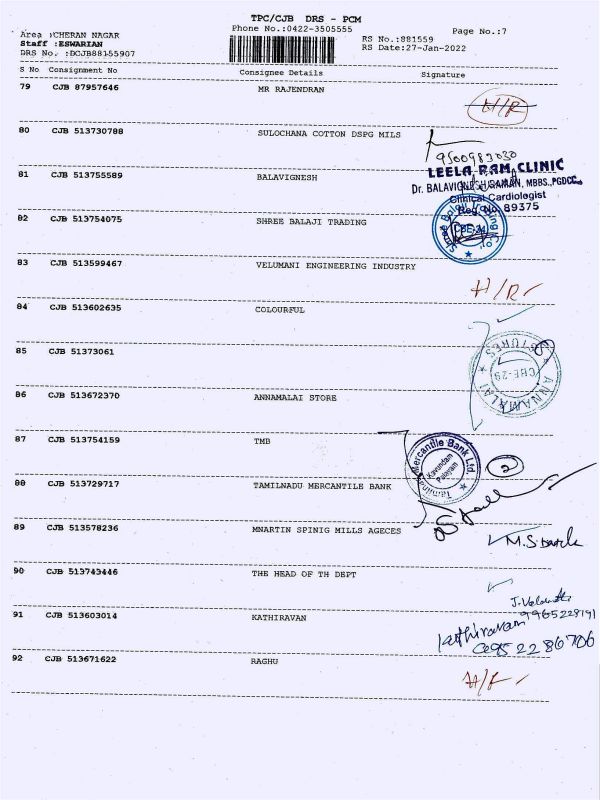 TPC/CJB DRS - PCM
Area :CHERAN NAGAR
Phone No.:0422-3505555
Page No.:7
Staff :ESWARIAN
RS No.:881559
DRS No. :DCJB88155907
RS Date:27-Jan-2022
S No Consignment No Consignee Details Signature
79 CJB 87957646 MR RAJENDRAN
H/R
80 CJB 513730788 SULOCHANA COTTON DSPG MILS
9500983030
LEELA RAM CLINIC
81 CJB 513755589 BALAVIGNESH
Dr. BALAVIGNESH RAMAN, MBBS.,PGDCC.,
Clinical Cardiologist
Reg. No. 89375
82 CJB 513754075 SHREE BALAJI TRADING
Shree Balaji Trading Co.
CBE-24
83 CJB 513599467 VELUMANI ENGINEERING INDUSTRY
H/R
84 CJB 513602635 COLOURFUL
85 CJB 51373061
ANNAMALAI
CBE-29
86 CJB 513672370 ANNAMALAI STORE
87 CJB 513754159 TMB
Tamilnad Mercantile Bank Ltd.
Kavundam
Palayam
2
88 CJB 513729717 TAMILNADU MERCANTILE BANK
89 CJB 513578236 MNARTIN SPINIG MILLS AGECES
90 CJB 513743446 THE HEAD OF TH DEPT
91 CJB 513603014 KATHIRAVAN
9965228191
kathiravan
92 CJB 513671622 RAGHU
H/R